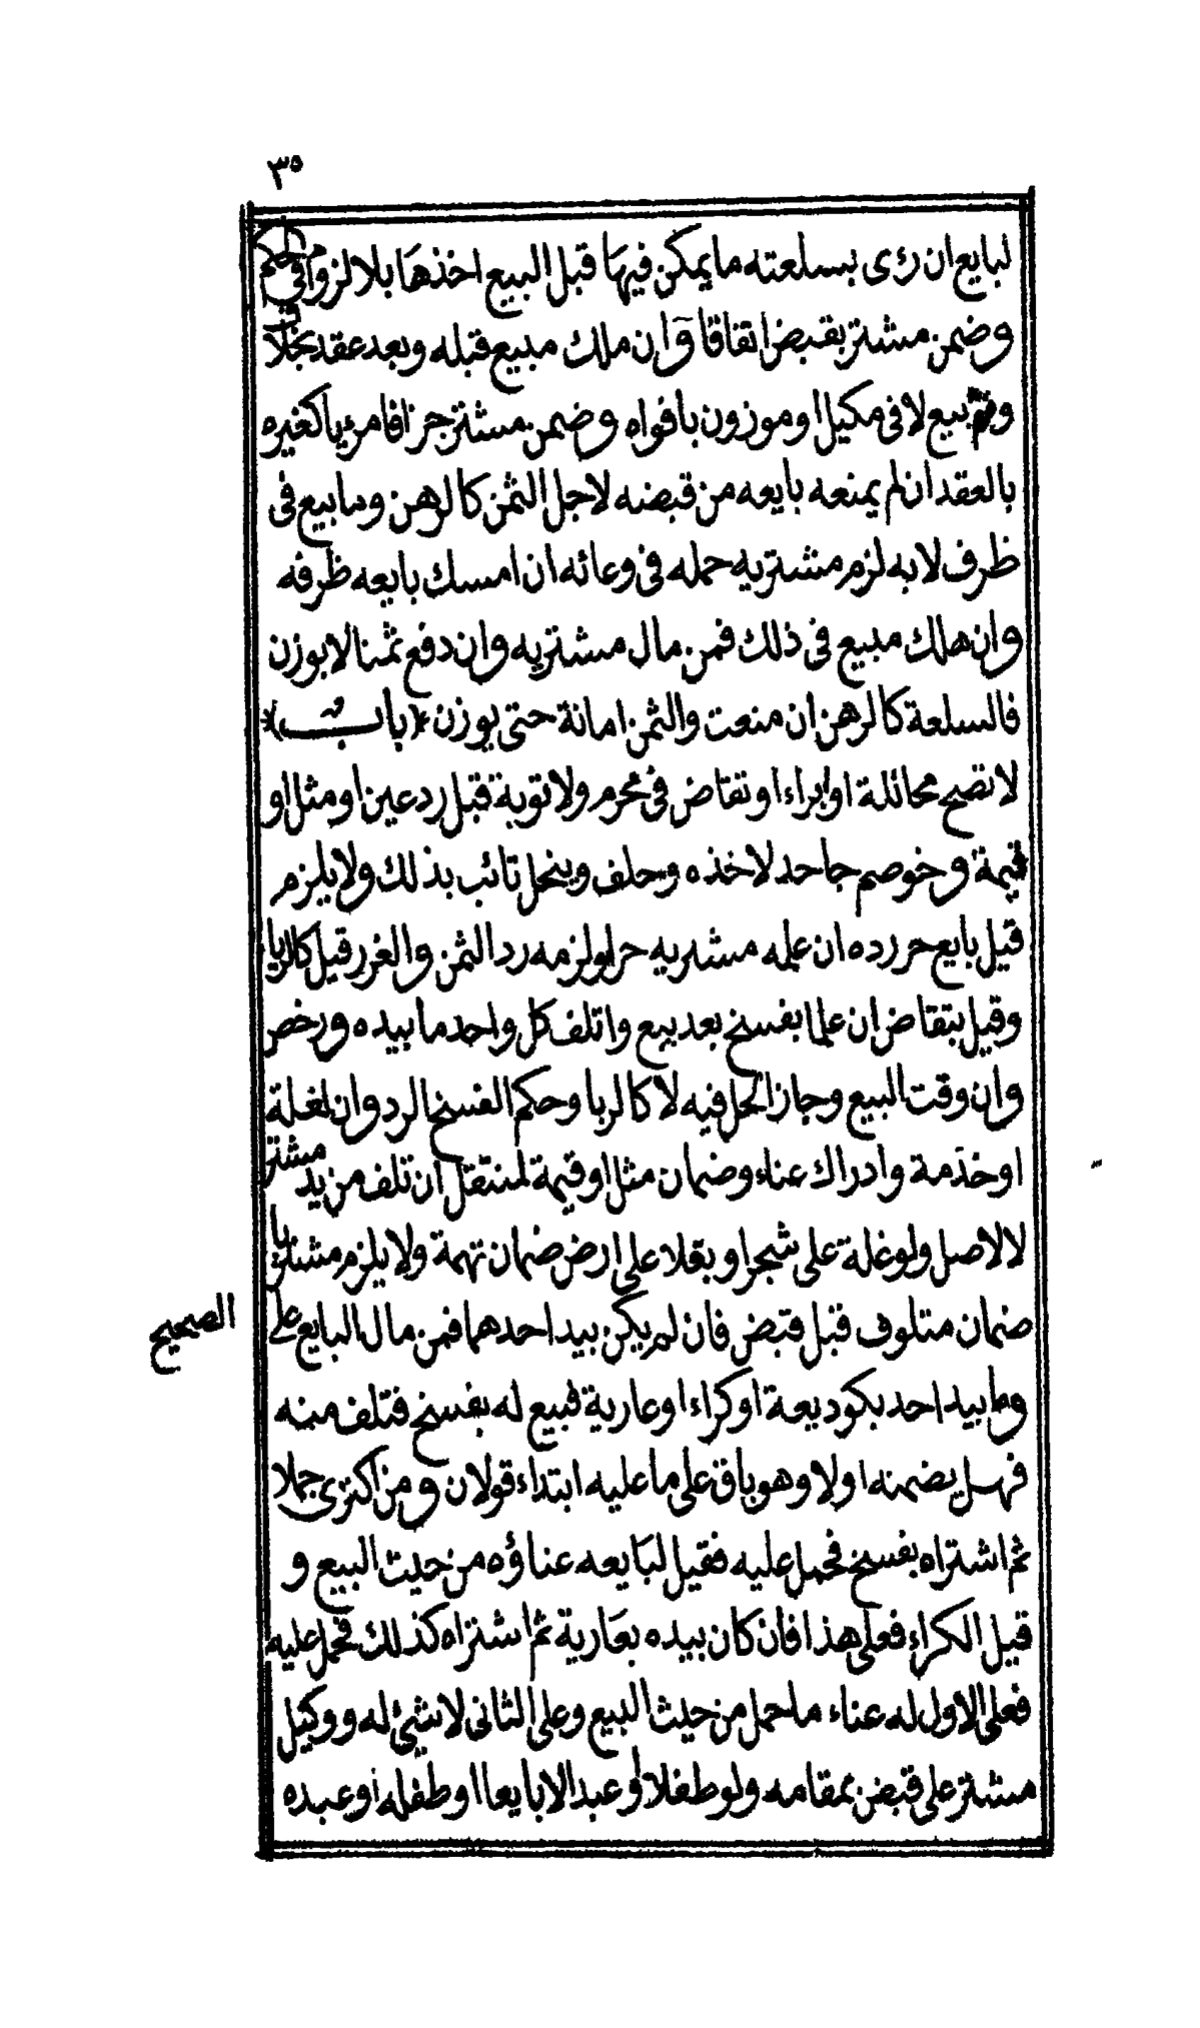 ٣٥
لبايع ان رؤى بسلعته ما يمكن فيها قبل البيع اخذها بلا لزوم في الحكم
وضمن مشتر بقبض اتفاقا وان ملك مبيع قبله وبعد عقد بخلاف
وتم بيع لا في مكيل او موزون بافواه وضمن مشتر جزافا مرئيا كغيره
بالعقد ان لم يمنعه بايعه من قبضه لاجل الثمن كالرهن وما بيع في
ظرف لا به لزم مشتريه حمله في وعائه ان امسك بايعه ظرفه
وان هلك مبيع في ذلك فمن مال مشتريه وان دفع ثمنا لا بوزن
فالسلعة كالرهن ان منعت والثمن امانة حتى يوزن (باب)
لا تصح محاللة او ابراء او تقاض في محرم ولا توبة قبل رد عين او مثل او
قيمة وخوصم جاحد لاخذه وحلف وينحل تائب بذلك ولا يلزم
قيل بايع حر رده ان علمه مشتريه حرا ولزمه رد الثمن والغرر قيل كالربا
وقيل بتقاض ان علما بفسخ بعد بيع واتلف كل واحد ما بيده ورخص
وان وقت البيع وجاز الحل فيه لا كالربا وحكم الفسخ الرد وان لغلة
او خدمة وادراك عناء وضمان مثل او قيمة لمنتقل ان تلف من يد مشتر
لا لاصل ولو غلة على شجر او بقلا على ارض ضمان تهمة ولا يلزم مشتريا
ضمان متلوف قبل قبض فان لم يكن بيد احدهما فمن مال البايع على
الصحيح
وما بيد احد بكوديعة او كراء او عارية فبيع له بفسخ فتلف منه
فهل يضمنه اولا وهو باق على ما عليه ابتداء قولان ومن اكترى جملا
ثم اشتراه بفسخ فحمل عليه فقيل لبايعه عناؤه من حيث البيع و
قيل الكراء فعلى هذا فان كان بيده بعارية ثم اشتراه كذلك فحمل عليه
فعلى الاول له عناء ما حمل من حيث البيع وعلى الثاني لا شئ له ووكيل
مشتر على قبض بمقامه ولو طفلا او عبدا لا بايعا او طفله او عبده